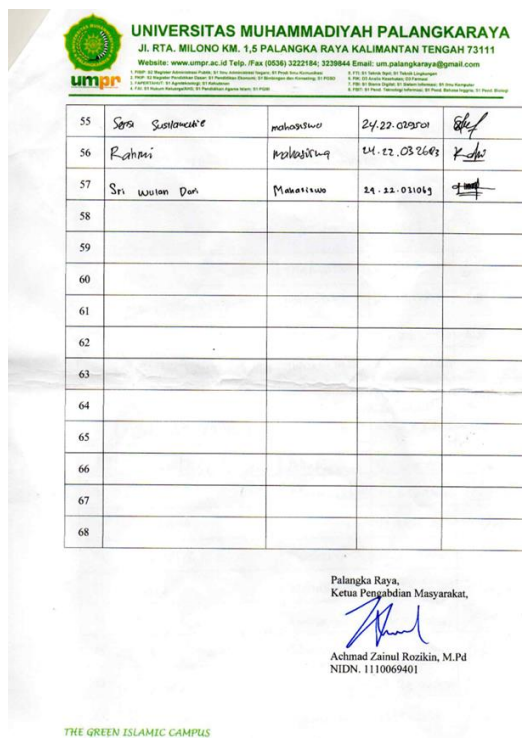 UNIVERSITAS MUHAMMADIYAH PALANGKARAYA
Jl. RTA. MILONO KM. 1,5 PALANGKA RAYA KALIMANTAN TENGAH 73111
Website: www.umpr.ac.id Telp. /Fax (0536) 3222184; 3239844 Email: um.palangkaraya@gmail.com
umpr
55 mahasiswa
56 Rahmi mahasiswa
57 Sri Wulan Dari Mahasiswa 24.22.031069
58
59
60
61
62
63
64
65
66
67
68
Palangka Raya,
Ketua Pengabdian Masyarakat,
Achmad Zainul Rozikin, M.Pd
NIDN. 1110069401
THE GREEN ISLAMIC CAMPUS